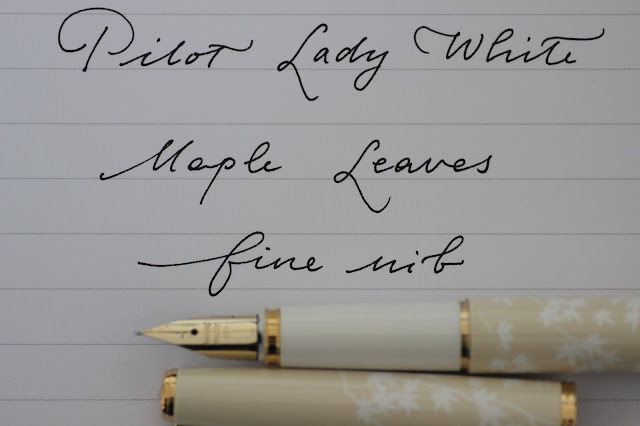 Pilot Lady White
Maple Leaves
fine nib